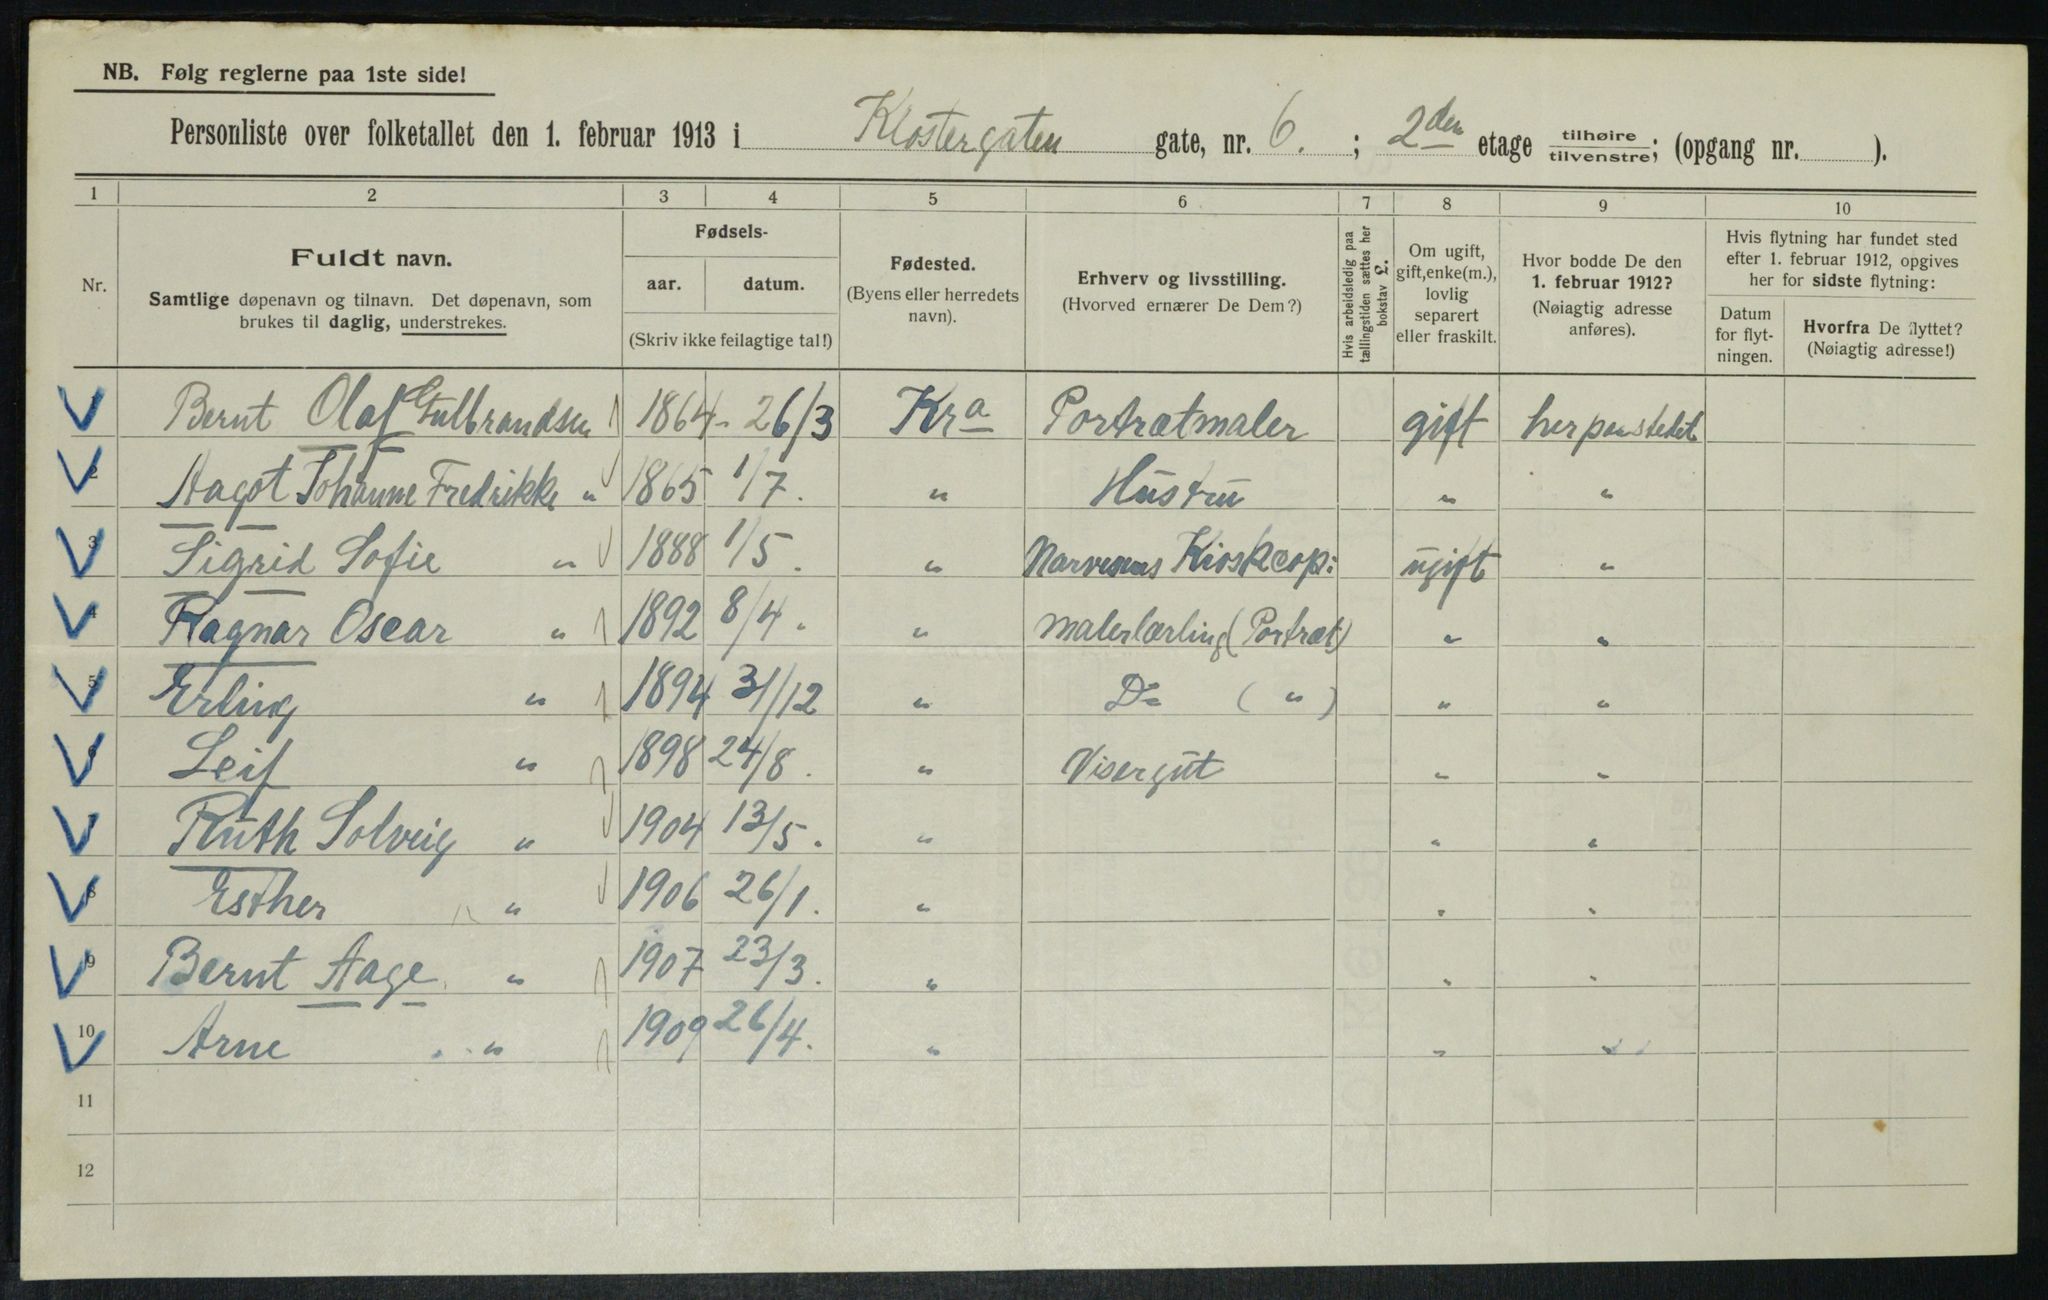 NB. Følg reglerne paa 1ste side!
Personliste over folketallet den 1. februar 1913 i Klostergaten gate, nr. 6. ; 2den etage tilhøire/tilvenstre; (opgang nr. ).
1 2 3 4 5 6 7 8 9 10
Nr.
Fuldt navn.
Samtlige døpenavn og tilnavn. Det døpenavn, som
brukes til daglig, understrekes.
Fødsels-
aar. datum.
(Skriv ikke feilagtige tal!)
Fødested.
(Byens eller herredets
navn).
Erhverv og livsstilling.
(Hvorved ernærer De Dem?)
Hvis arbeidsledig paa
tællingstiden sættes her
bokstav £.
Om ugift,
gift, enke(m.),
lovlig
separert
eller fraskilt.
Hvor bodde De den
1. februar 1912?
(Nøiagtig adresse
anføres).
Hvis flytning har fundet sted
efter 1. februar 1912, opgives
her for sidste flytning:
Datum
for flyt-
ningen.
Hvorfra De flyttet?
(Nøiagtig adresse!)
1 Bernt Olaf Gulbrandsen 1864 - 26/3 Kra Portrætmaler gift her paa stedet
2 Aagot Johanne Fredrikke " 1865 1/7. " Hustru " "
3 Sigrid Sofie " 1888 1/5. " Narvesens Kioskcop: ugift "
4 Ragnar Oscar " 1892 8/4. " Malerlærling (Portræt) " "
5 Erling " 1894 31/12 " Do ( " ) " "
6 Leif " 1898 24/8. " Visergut " "
7 Ruth Solveig " 1904 13/5. " " "
8 Esther " 1906 26/1. " " "
9 Bernt Aage " 1907 23/3. " " "
10 Arne " 1909 26/4. " " "
11
12